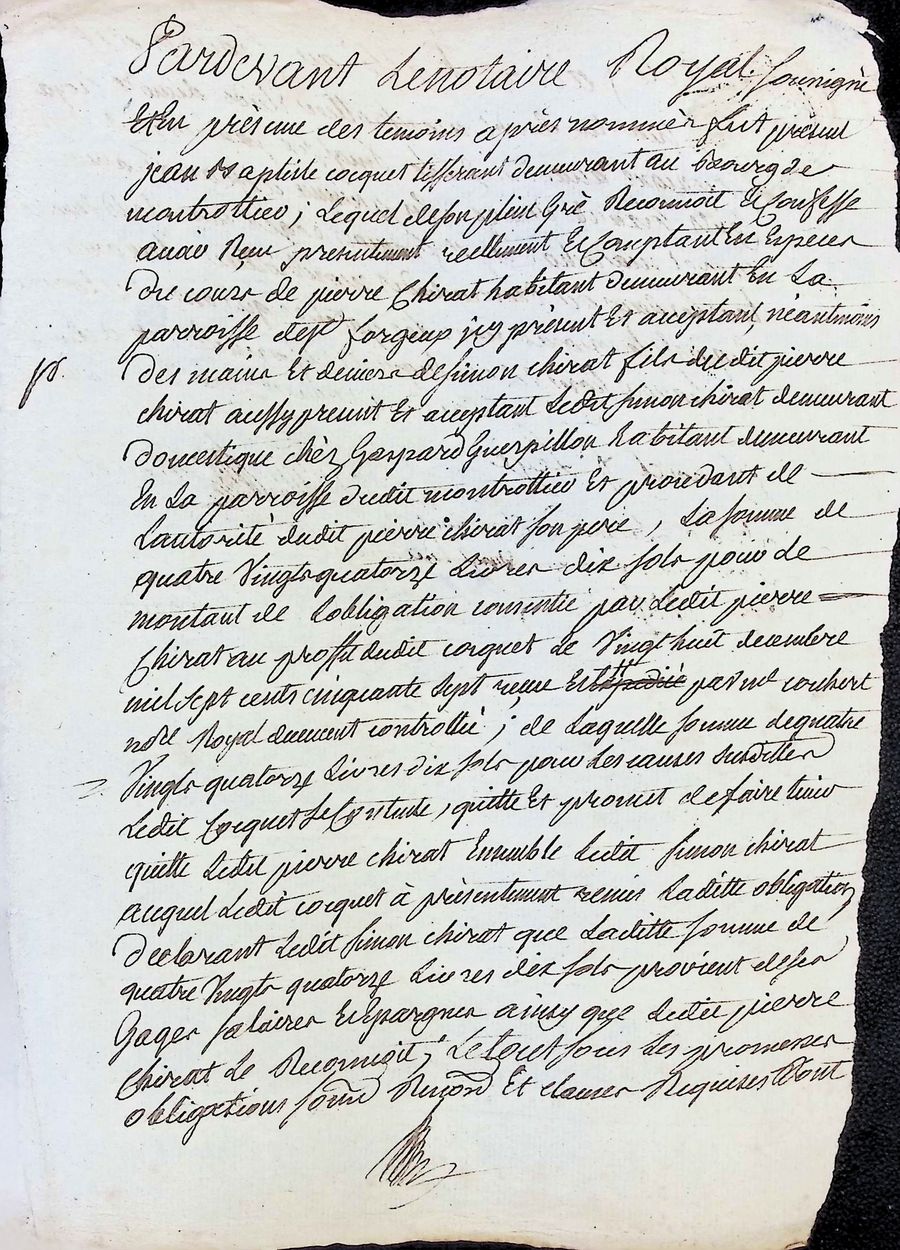 Pardevant Le notaire Royal soussigné
Et En présence des temoins après nommèz fut présent
jean Baptiste cocquet tisserant demeurant au bourg de
montrottier ; Lequel de son plein Grè Reconnoit Et Confesse
avoir Reçu presentement reellement Et Comptant En Especes
du cours de pierre Chirat habitant demeurant En La
parroisse de st forgeux icy présent Et aceptant, néantmoins
des mains Et deniers de simon chirat fils du dit pierre
chirat aussy present Et aceptant Ledit simon chirat demeurant
domestique chèz Gaspard Guerpillon habitant demeurant
En La parroisse dudit montrottier Et procedant de
Lautorité dudit pierre chirat son pere, La somme de
quatre Vingts quatorze Livres dix sols pour le
montant de Lobligation consentie par Ledit pierre
Chirat au proffit dudit cocquet le Vingt huit decembre
mil sept cents cinquante sept reçue Et expedié par me coubert
nore Royal duement controllée ; de Laquelle somme de quatre
Vingts quatorze Livres dix sols pour Les causes susdittes
Ledit Cocquet Se Contente, quitte Et promet de faire tenir
quitte Ledit pierre chirat Ensemble Ledit simon chirat
auquel Ledit cocquet à présentement remis Laditte obligation
declarant Ledit simon chirat que Laditte somme de
quatre Vingts quatorze Livres dix sols provient de ses
Gages salaires Et Epargnes ainsy que Ledit pierre
Chirat Le Reconnoit ; Le tout sous Les promesses
obligations soumd Renond Et clauses Requises Dont